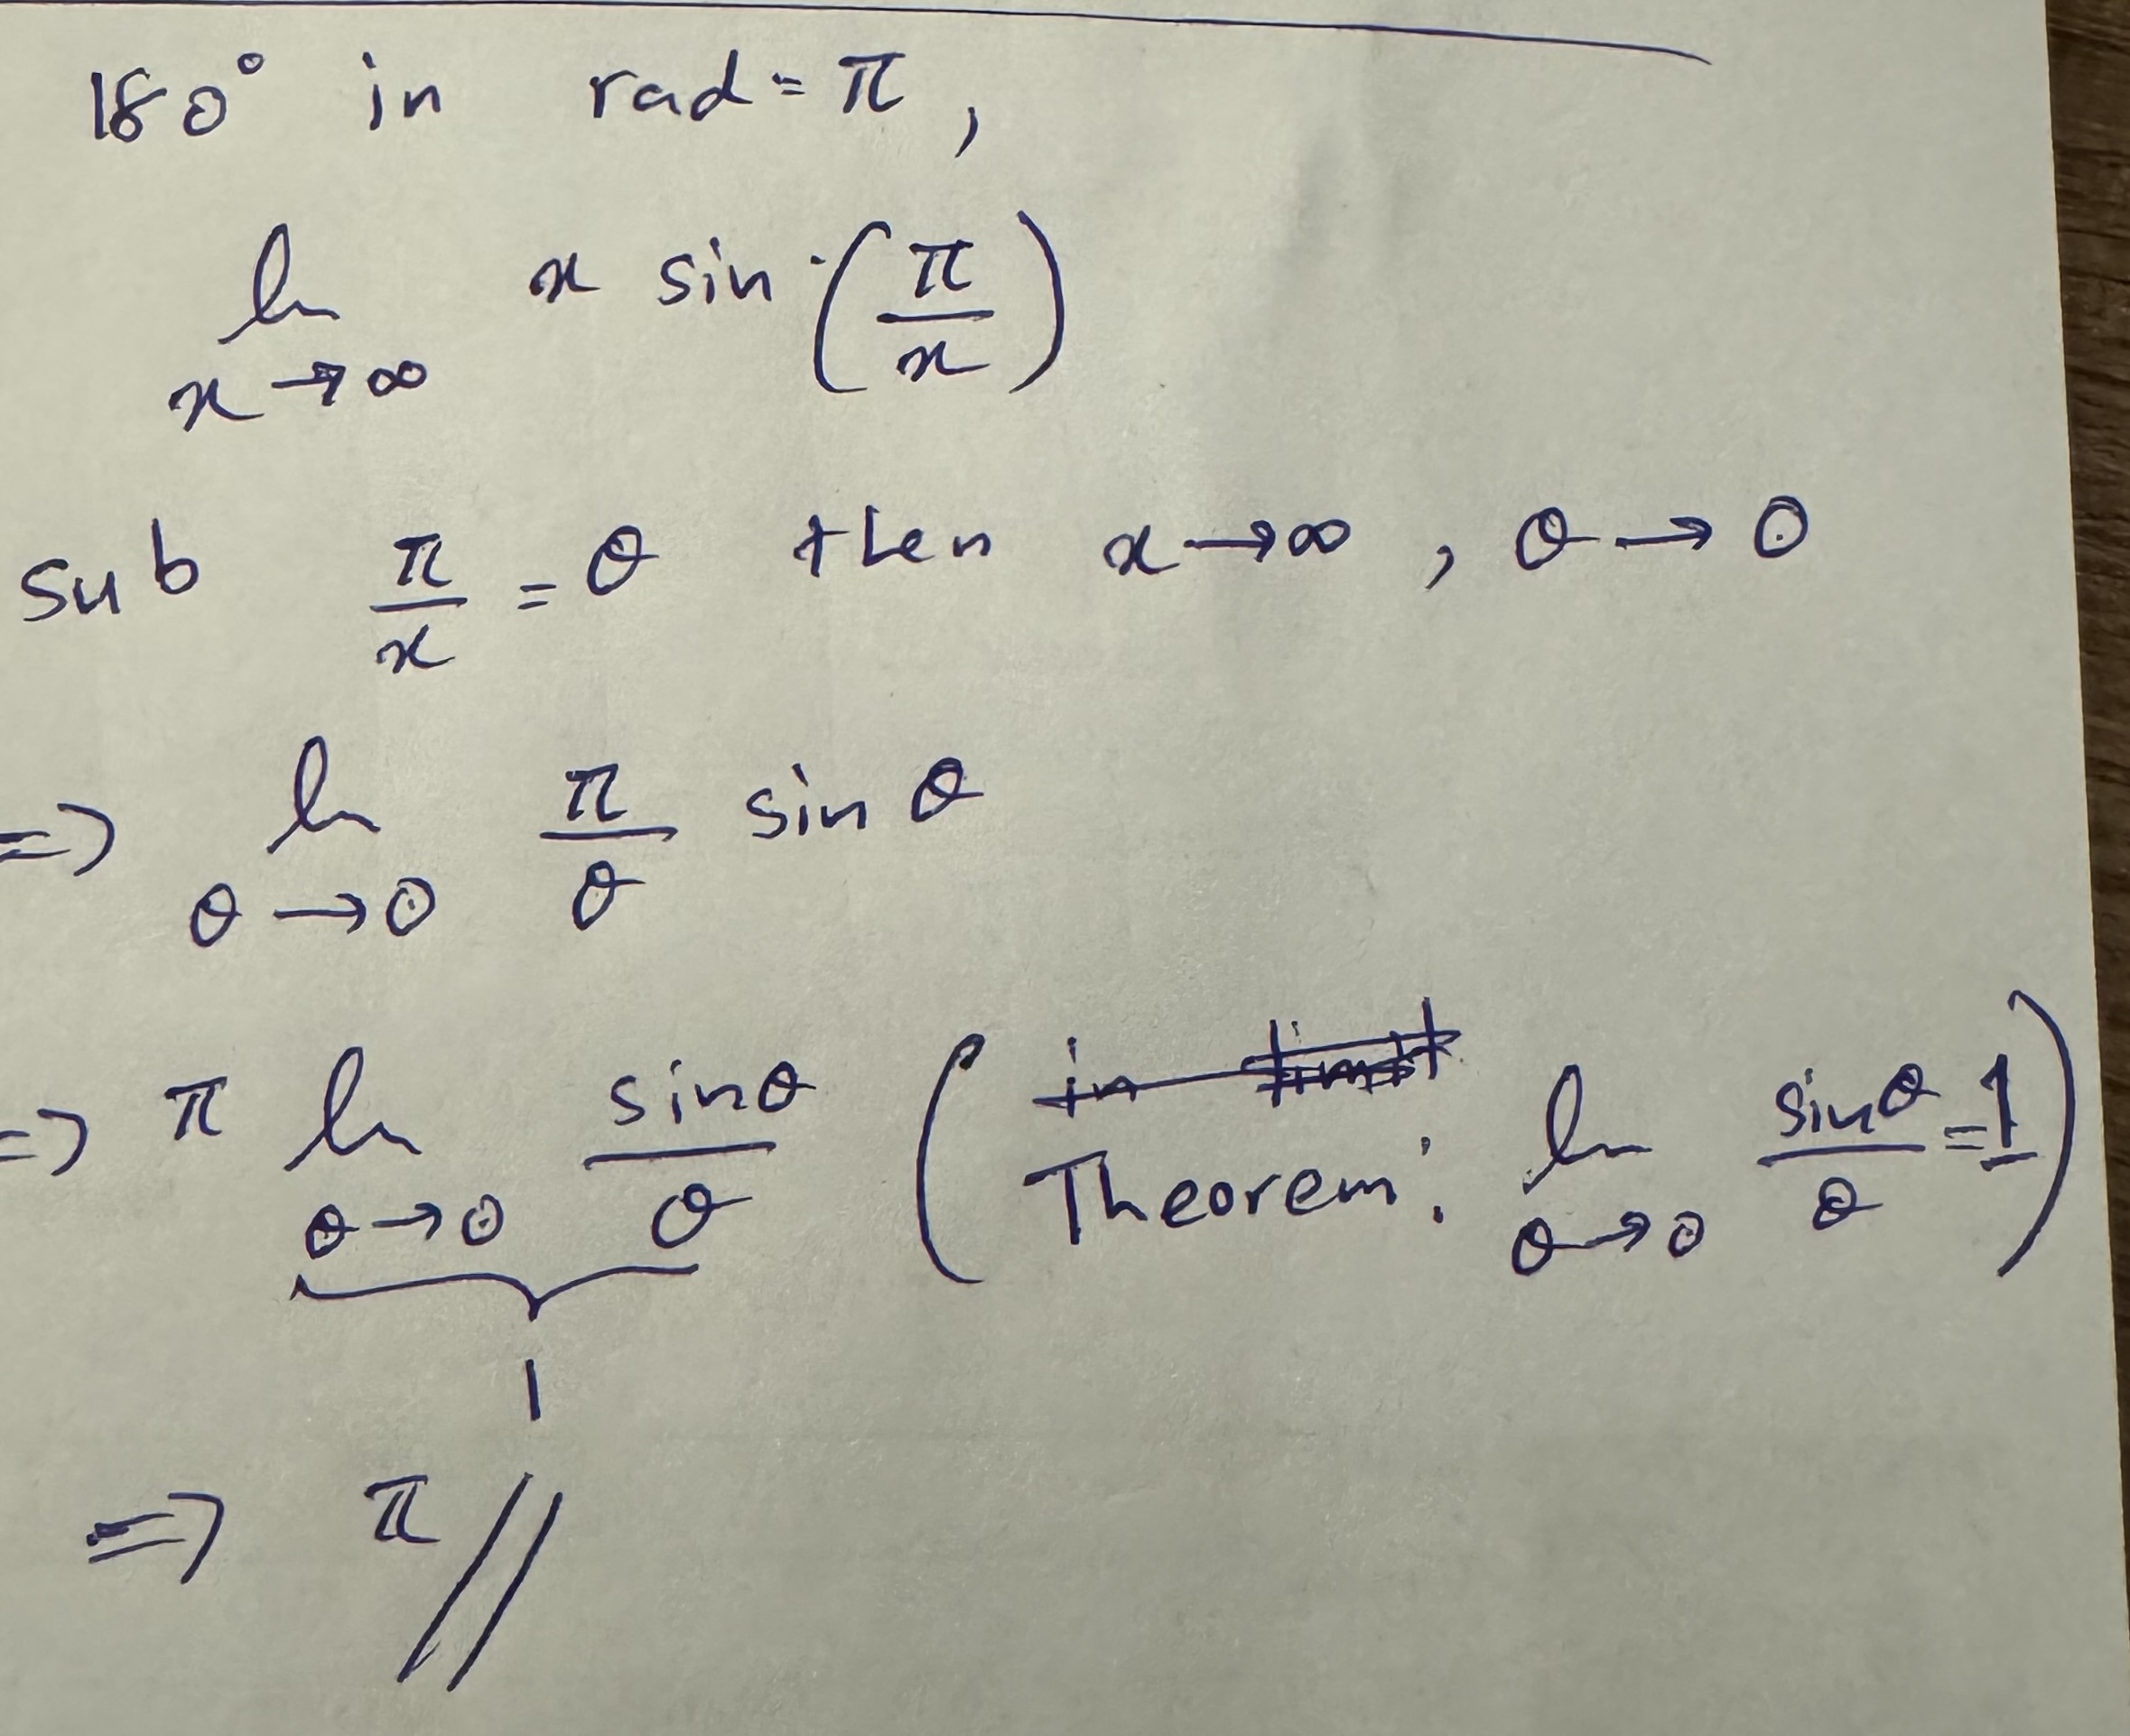 180° in rad = π,
lim x→∞ x sin (π/x)
sub π/x = θ then x→∞, θ→0
=> lim θ→0 π/θ sin θ
=> π lim θ→0 sinθ/θ (Theorem: lim θ→0 sinθ/θ = 1)
1
=> π //